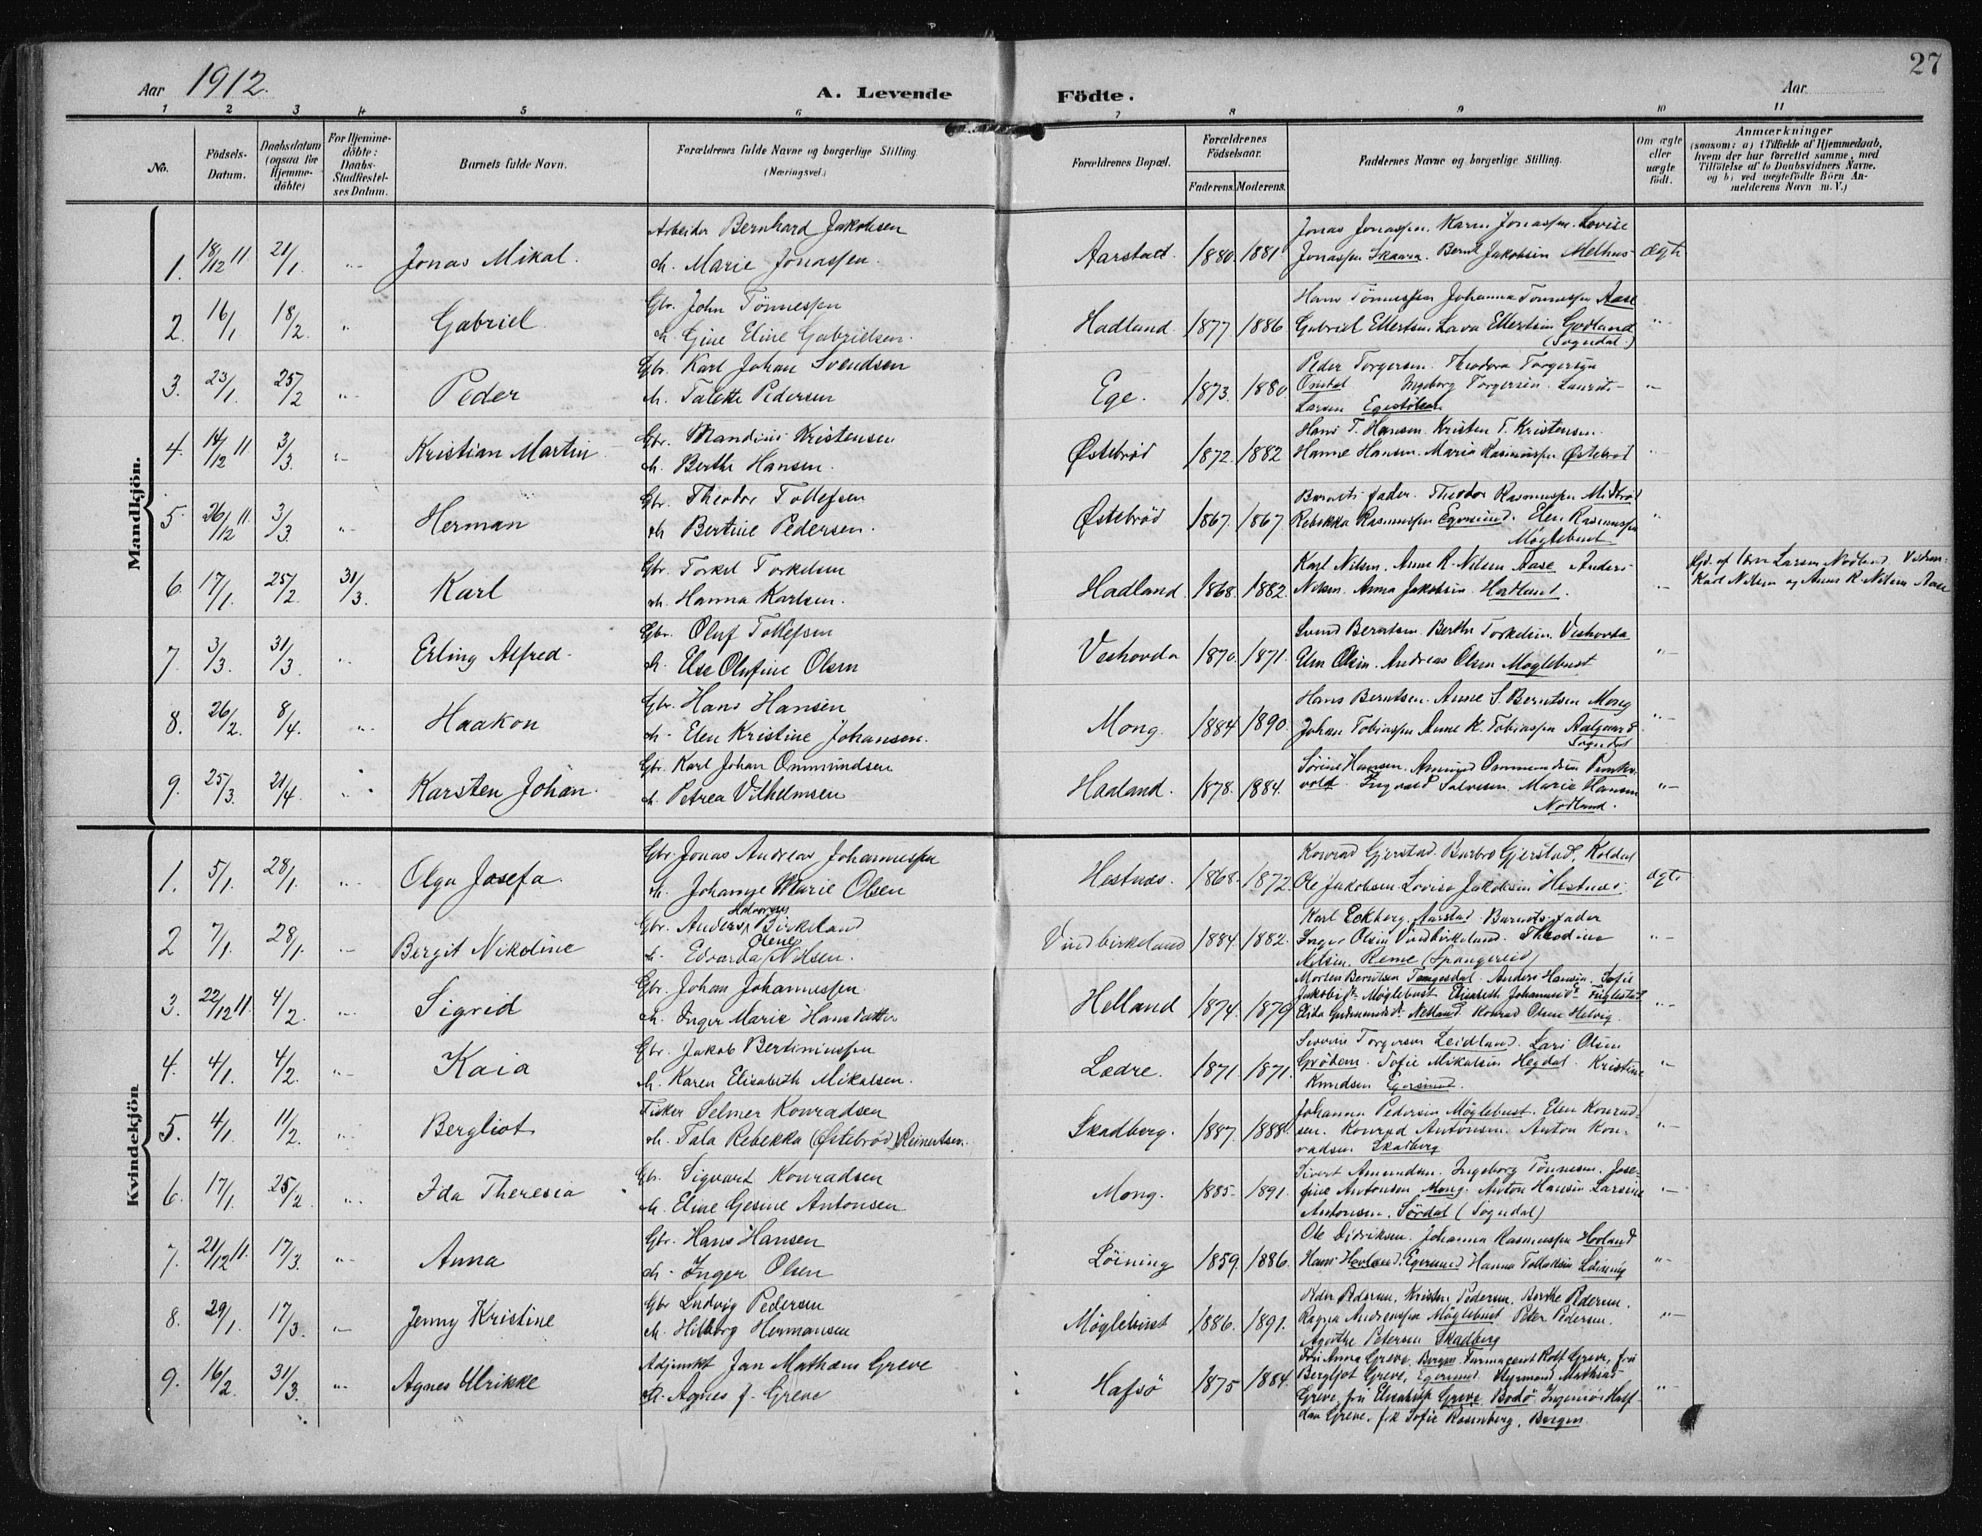 27
Aar 1912.
A. Levende Födte.
Aar
1 2 3 4 5 6 7 8 9 10 11
No.
Födsels-Datum.
Daabsdatum (ogsaa for Hjemme-döbte)
For Hjemme-döbte: Daabs-Stadfæstel-ses Datum.
Barnets fulde Navn.
Forældrenes fulde Navne og borgerlige Stilling.
(Næringsvei.)
Forældrenes Bopæl.
Forældrenes Födselsaar.
Faderens. Moderens.
Faddernes Navne og borgerlige Stilling.
Om ægte eller uægte födt.
Anmærkninger
(saasom: a) i Tilfælde af Hjemmedaab, hvem der har forrettet samme, med Tilföielse af to Daabsvidners Navne. og b) ved uægtefödte Börn An-melderens Navn m. V.)
Mandkjön.
1. 18/12 11 21/1 Jonas Mikal. Arbeider Bernhard Jakobsen
Marie Jonassen. Aarstad. 1880. 1881. Jonas Jonassen. Karen Jonassen. Lovise
Jonassen Skaara. Bernt Jakobsen Melhus ægte
2. 16/1 18/2 Gabriel. Gbr. John Tönnessen
Gine Eline Gabrielsen. Hadland. 1877. 1886 Hans Tönnessen Johanna Tönnessen Aase
Gabriel Ellertsen Lava Ellertsen Godland
(Sogndal.)
3. 23/1 25/2 Peder Gbr. Karl Johan Svendsen
Talette Pedersen Ege. 1873. 1880 Peder Torgersen. Theodora Torgersen
Ingeborg Torgersen. Laurits
Larsen Egestölen
4. 14/12 11 3/3 Kristian Martin Gbr. Mandius Kristensen
Berthe Hansen. Østebröd 1872. 1882 Hans T. Hansen. Kristen T. Kristensen.
Hanne Hansen. Maria Rasmussen Østebröd
5. 26/12 11 3/3 Herman Gbr. Theodor Tollefsen
Bertine Pedersen. Østebröd 1867. 1867 Barnets fader. Theodor Rasmussen Midbröd
Rebekka Rasmussen Egersund. Elen Rasmussen
Möglebust
6. 17/1 25/2 31/3 Karl Gbr. Torkel Torkelsen
Hanna Karlsen. Hadland. 1868. 1882. Karl Nilsen. Anne R. Nilsen Aase Anders
Nilsen. Anna Jakobsen Hadland.
Hjd. af Larsen Nodland.
Karl Nilsen og Anne R. Nilsen Aase
7. 3/3 31/3 Erling Alfred. Gbr. Oluf Tollefsen
Else Olufine Olsen Veshovda 1870. 1871. Svend Berntsen. Berthe Torkelsen. Veshovda
Elen Olsen. Andreas Olsen Möglebust
8. 26/2 8/4. Haakon Gbr. Hans Hansen
Elen Kristine Johansen. Mong. 1884 1890. Hans Berntsen. Anne S. Berntsen Mong
Johan Tobiassen Anne K. Tobiassen Aalgaard
Sogndal
9. 25/3. 21/4 Karsten Johan. Gbr. Karl Johan Ommundsen
Petrea Vilhelmsen Hadland. 1878. 1884. Sörine Hansen. Ommundsen
Ingvald Salvesen. Marie Hansen
Nodland.
Kvindekjön
1. 5/1. 28/1 Olga Josefa. Gbr. Jonas Andreas Johannessen
Johanne Marie Olsen Hestnes. 1868. 1872. Konrad Gjerstad. Barbro Gjerstad,
Ole Jakobsen. Lovise Jakobsen Hestnes. ægte
2 7/1. 28/1. Bergit Nikoline Gbr. Anders Halvorsen Birkeland
Edvarda Olene Nilsen. Vindbirkeland 1884. 1882. Karl Eckberg. Aarstad. Barnets fader
Inger Olsen Vindbirkeland. Theodine
Nilsen. Reme (Spangereid)
3. 22/12 11. 4/2 Sigrid Gbr. Johan Johannessen
Inger Marie Hansdatter Helland 1874. 1879 Morten Berntsen Tengesdal. Anders Hansen. Sofie
Jakobsdt. Möglebust Elisabeth Johannesdt. Fuglestad
Nedland Konrad Olsen Helvig.
4. 4/1. 4/2. Kaia Gbr. Jakob Bertiniussen
Karen Elisabeth Mikalsen. Lædre. 1871 1871. Torgersen Leidland. Lars Olsen
Grödem. Sofie Mikalsen Hegdal. Kristine
Knudsen Egersund.
5. 4/1. 11/2. Bergliot Fisker Selmer Konradsen
Tala Rebekka (Østebröd) Reinertsen. Skadberg. 1887. 1888. Johanna Pedersen Möglebust. Elen Konrad-
sen. Konrad Antonsen. Anton Kon-
radsen Skadberg
6. 17/1. 25/2. Ida Theresia Gbr. Sigvart Konradsen
Eline Gesine Antonsen Mong. 1885. 1891. Sivert Amundsen. Ingeborg Tönnesen. Jose-
fine Antonsen Mong. Anton Hansen Larsine
Antonsen. Sördal (Sogndal)
7. 21/12 11. 17/3. Anna Gbr. Hans Hansen
Inger Olsen Löining 1859. 1886. Ole Didriksen. Johanna Rasmussen Hovland
Hans Hovland Egersund Hanna Tollaksen Löining
8. 29/1. 17/3. Jenny Kristine Gbr Ludvig Pedersen
Hilborg Hermansen Möglebust 1886. 1891. Peder Pedersen. Kristen Pedersen. Berthe Pedersen.
Ragna Andreassen Möglebust Peter Pedersen.
Agathe Petersen Skadberg
9. 16/2. 31/3. Agnes Ulrikke Adjunkt Jan Mathæus Greve
Agnes f. Greve Hafsö 1875 1884. Fru Anna Greve, Bergen Farmaceut Rolf Greve, fru
Bergljot Greve, Egersund Styrmand Mathias
Greve, fru Elisabeth Greve Bodö Ingeniör Half-
dan Greve, frk Sofie Rosenberg, Bergen